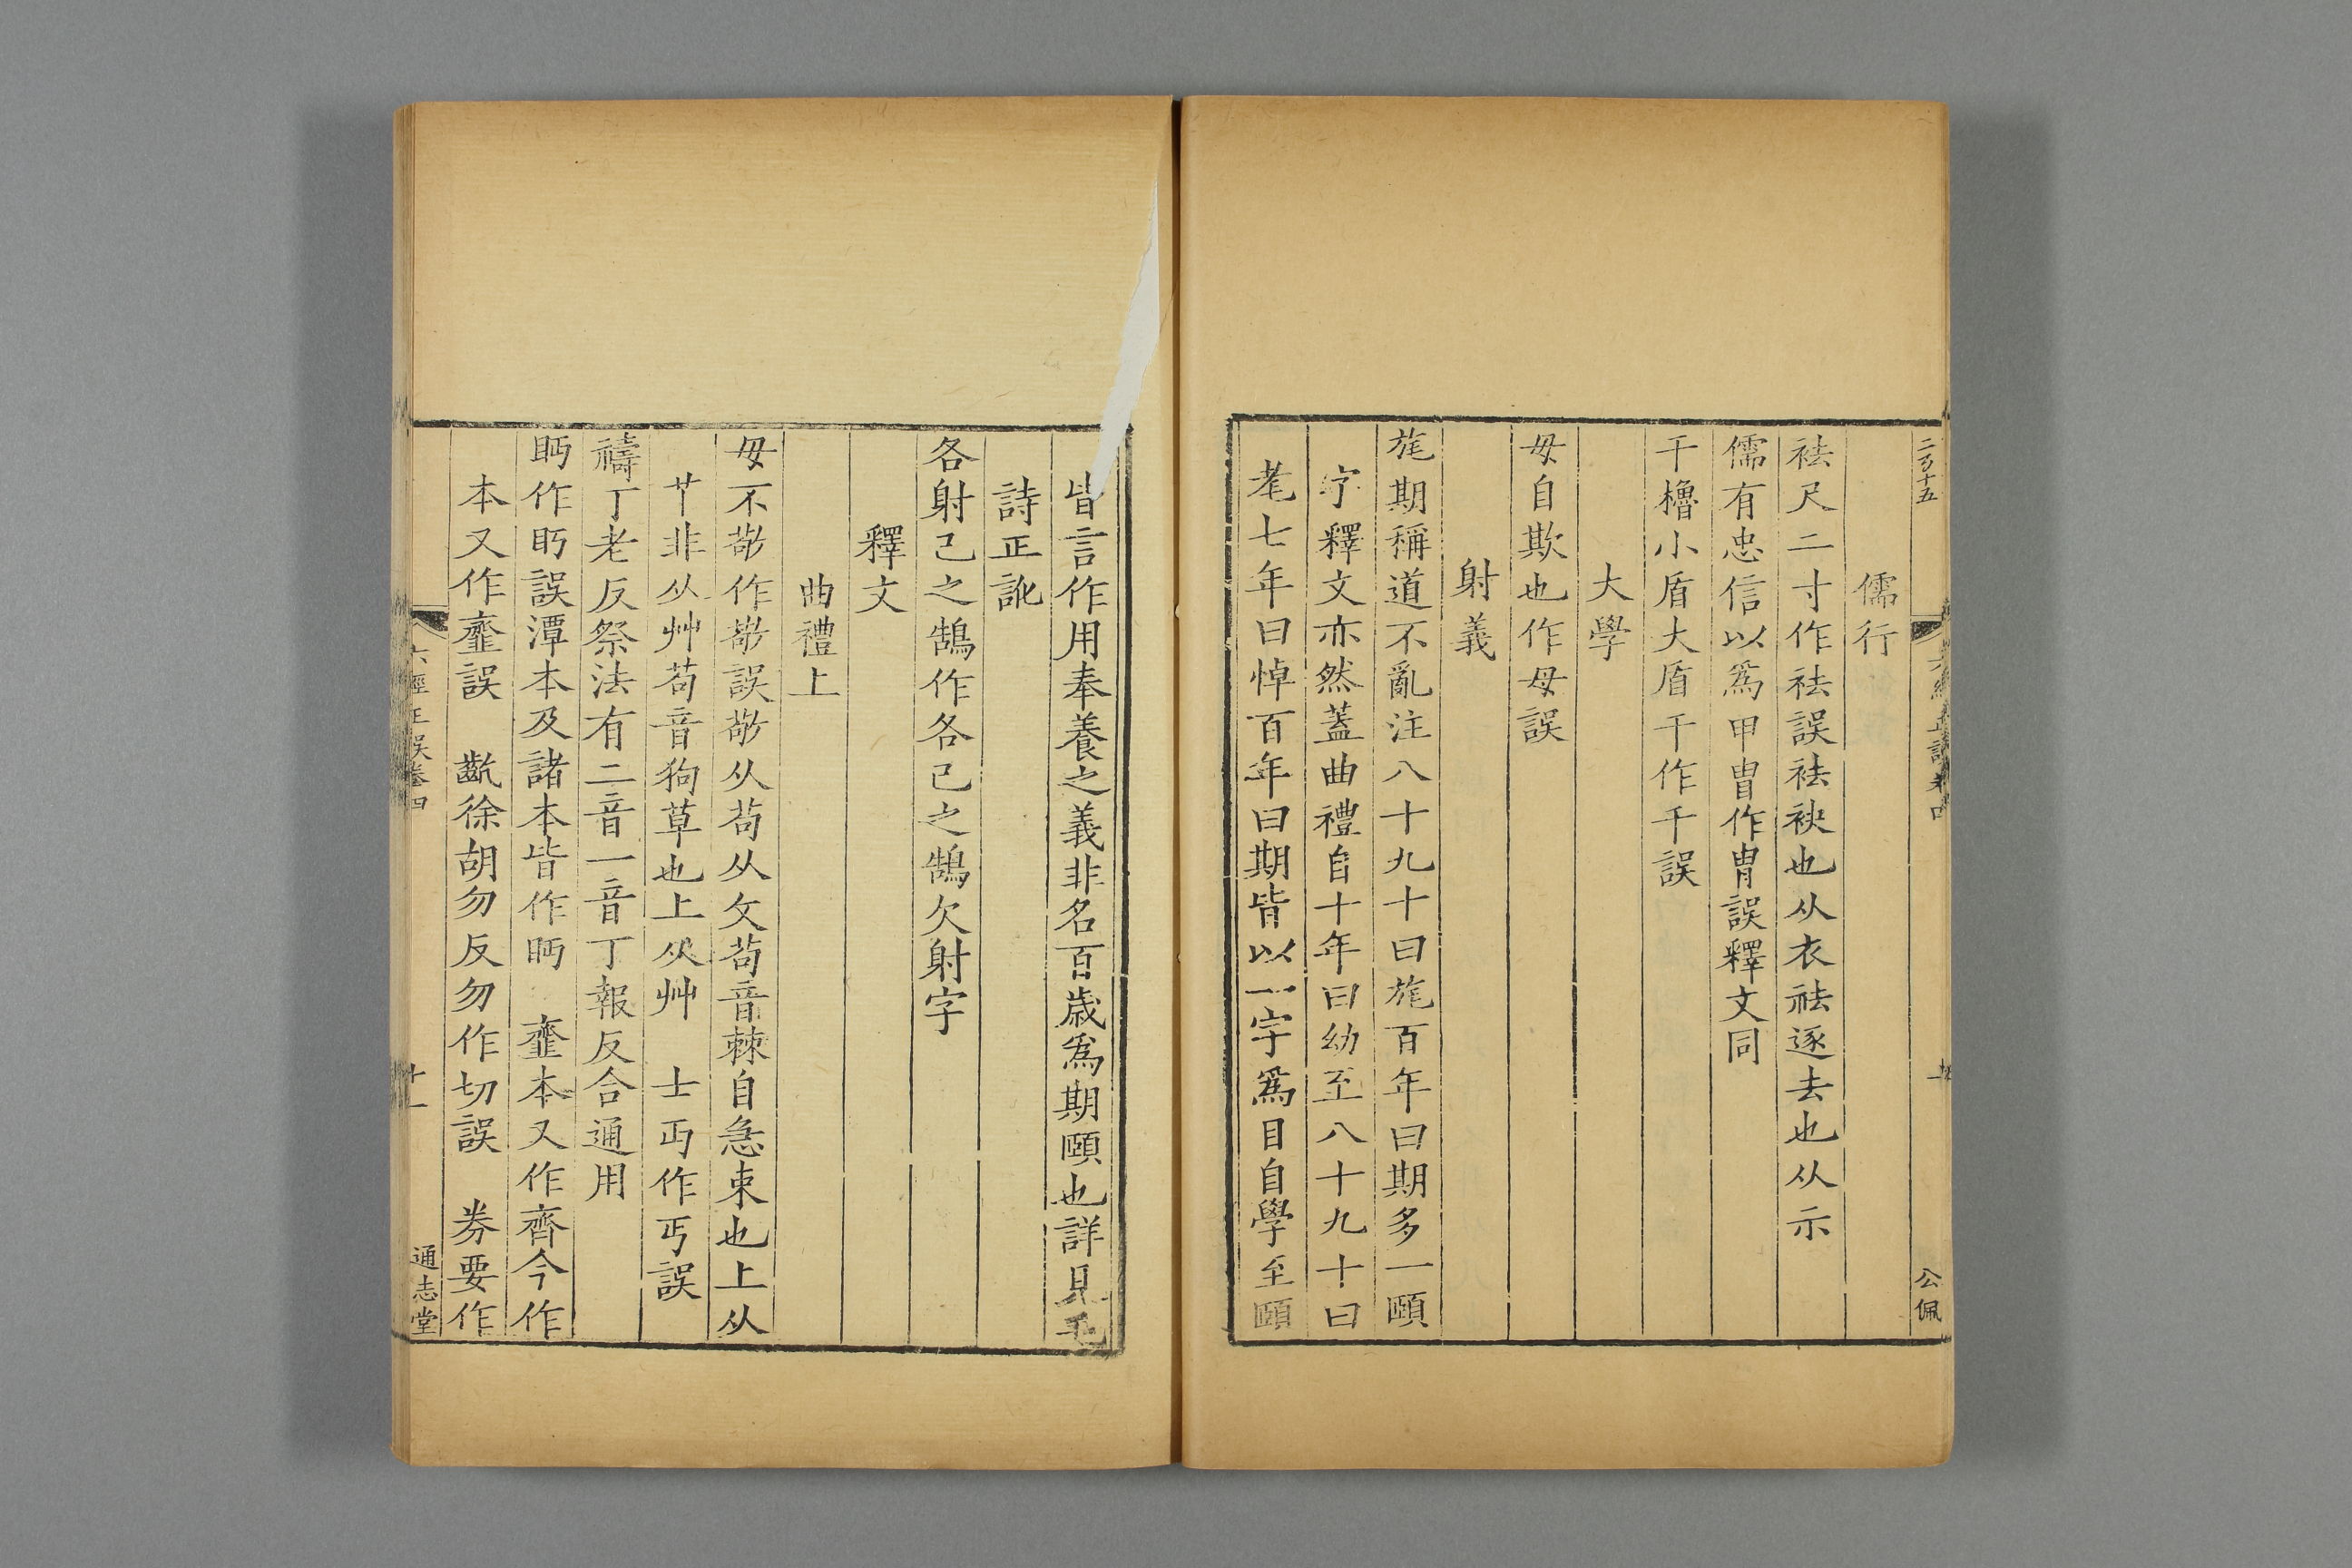 二百十五
公佩
儒行
袪尺二寸作祛誤袪袂也从衣祛逐去也从示
儒有忠信以爲甲冑作胄誤釋文同
干櫓小盾大盾干作千誤
大學
毋自欺也作母誤
射義
旄期稱道不亂注八十九十曰旄百年曰期多一頤
字釋文亦然蓋曲禮自十年曰幼至八十九十曰
耄七年曰悼百年曰期皆以一字爲目自學至頤
皆言作用奉養之義非名百歲爲期頤也詳見毛
詩正訛
各射己之鵠作各己之鵠欠射字
釋文
曲禮上
毋不敬作敬誤敬从茍从攵茍音棘自急束也上从
艹非从艸苟音狗草也上从艸 士丏作丐誤
禱丁老反祭法有二音一音丁報反合通用
眄作盻誤潭本及諸本皆作眄 齏本又作齊今作
本又作齏誤 齕徐胡勿反勿作切誤 券要作
六經正誤卷四
十一
通志堂